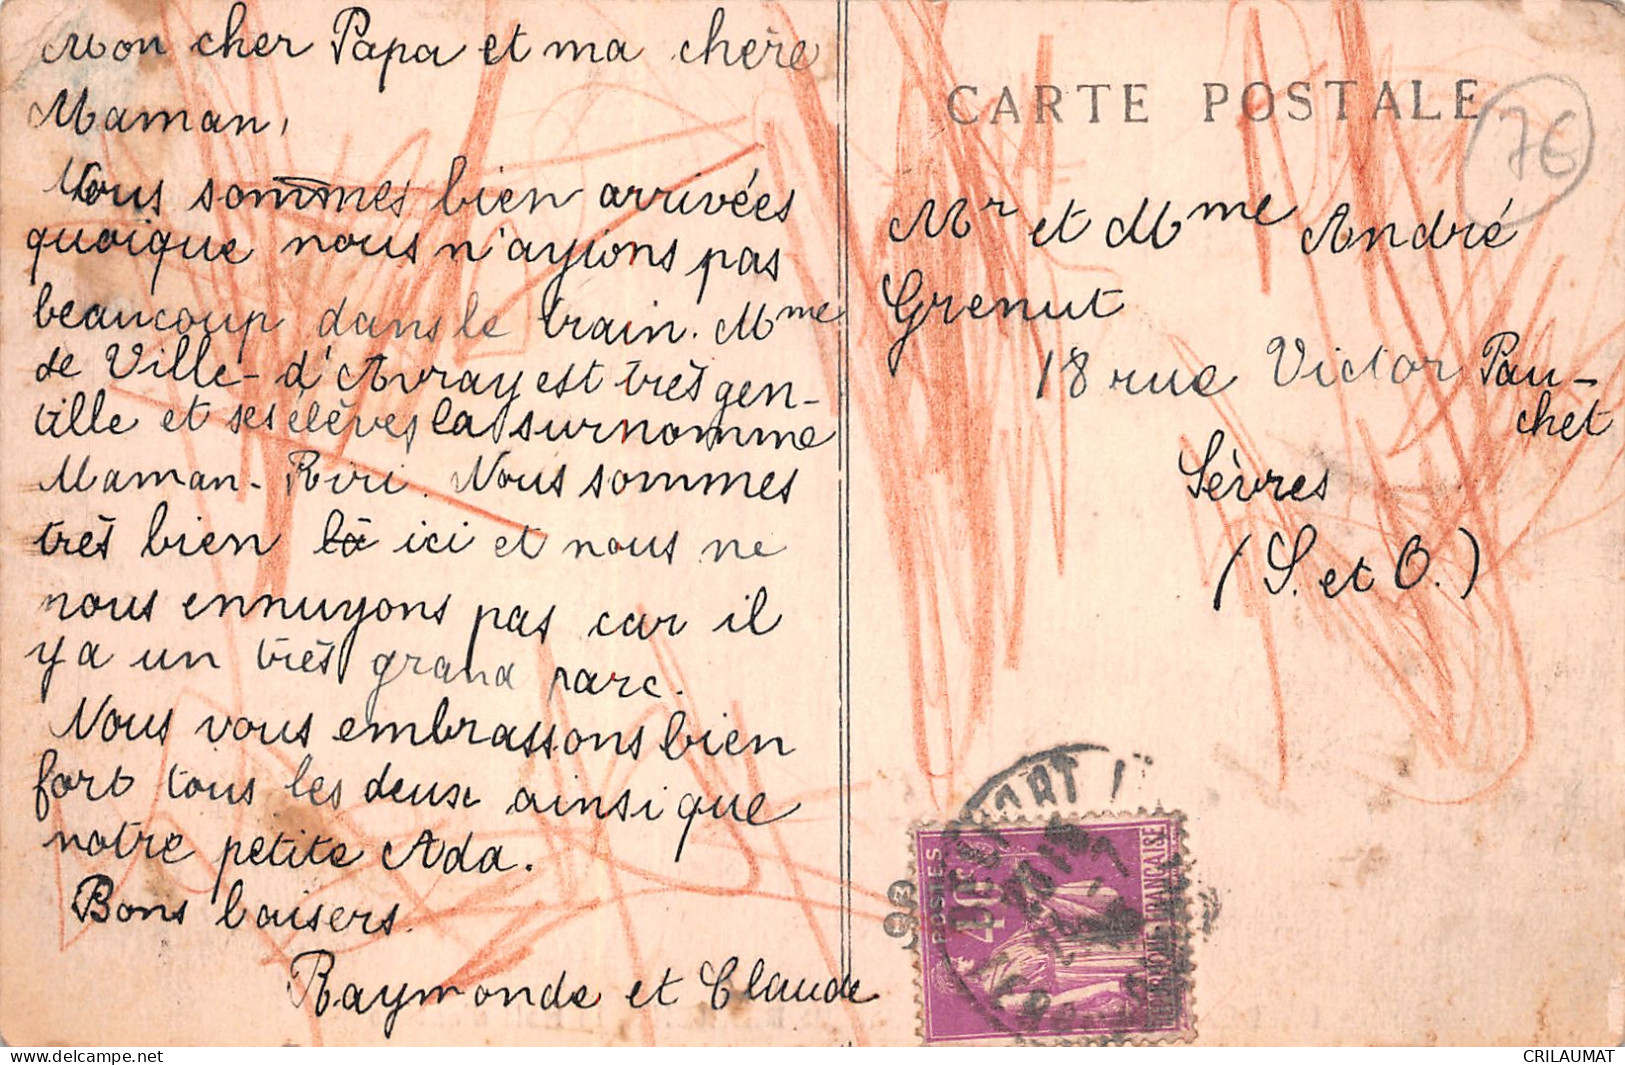 Mon cher Papa et ma chère
Maman,
Nous sommes bien arrivées
quoique nous n'ayions pas
beaucoup dans le train. Mme
de Ville-d'Avray est très gen-
tille et ses élèves la surnomme
Maman-Riri. Nous sommes
très bien là ici et nous ne
nous ennuyons pas car il
y a un très grand parc.
Nous vous embrassons bien
fort tous les deux ainsi que
notre petite Ada.
Bons baisers.
Raymonde et Claude
CARTE POSTALE
7€
Mr et Mme André
Grenut
18 rue Victor Pau-
chet
Sèvres
(S. et O.)
POSTES
40c
REPUBLIQUE FRANÇAISE
CRILAUMAT